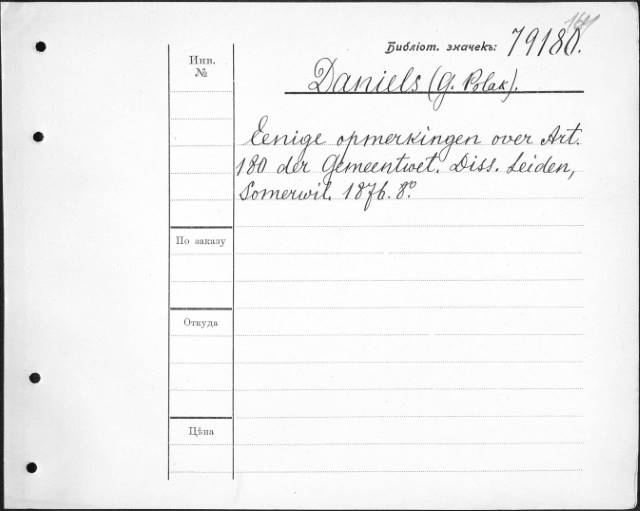 Библіот. значекъ: 79180.
Инв.
№
Daniels (G. Polak).
Eenige opmerkingen over Art.
180 der Gemeentwet. Diss. Leiden,
Somerwil. 1876. 8°.
По заказу
Откуда
Цѣна